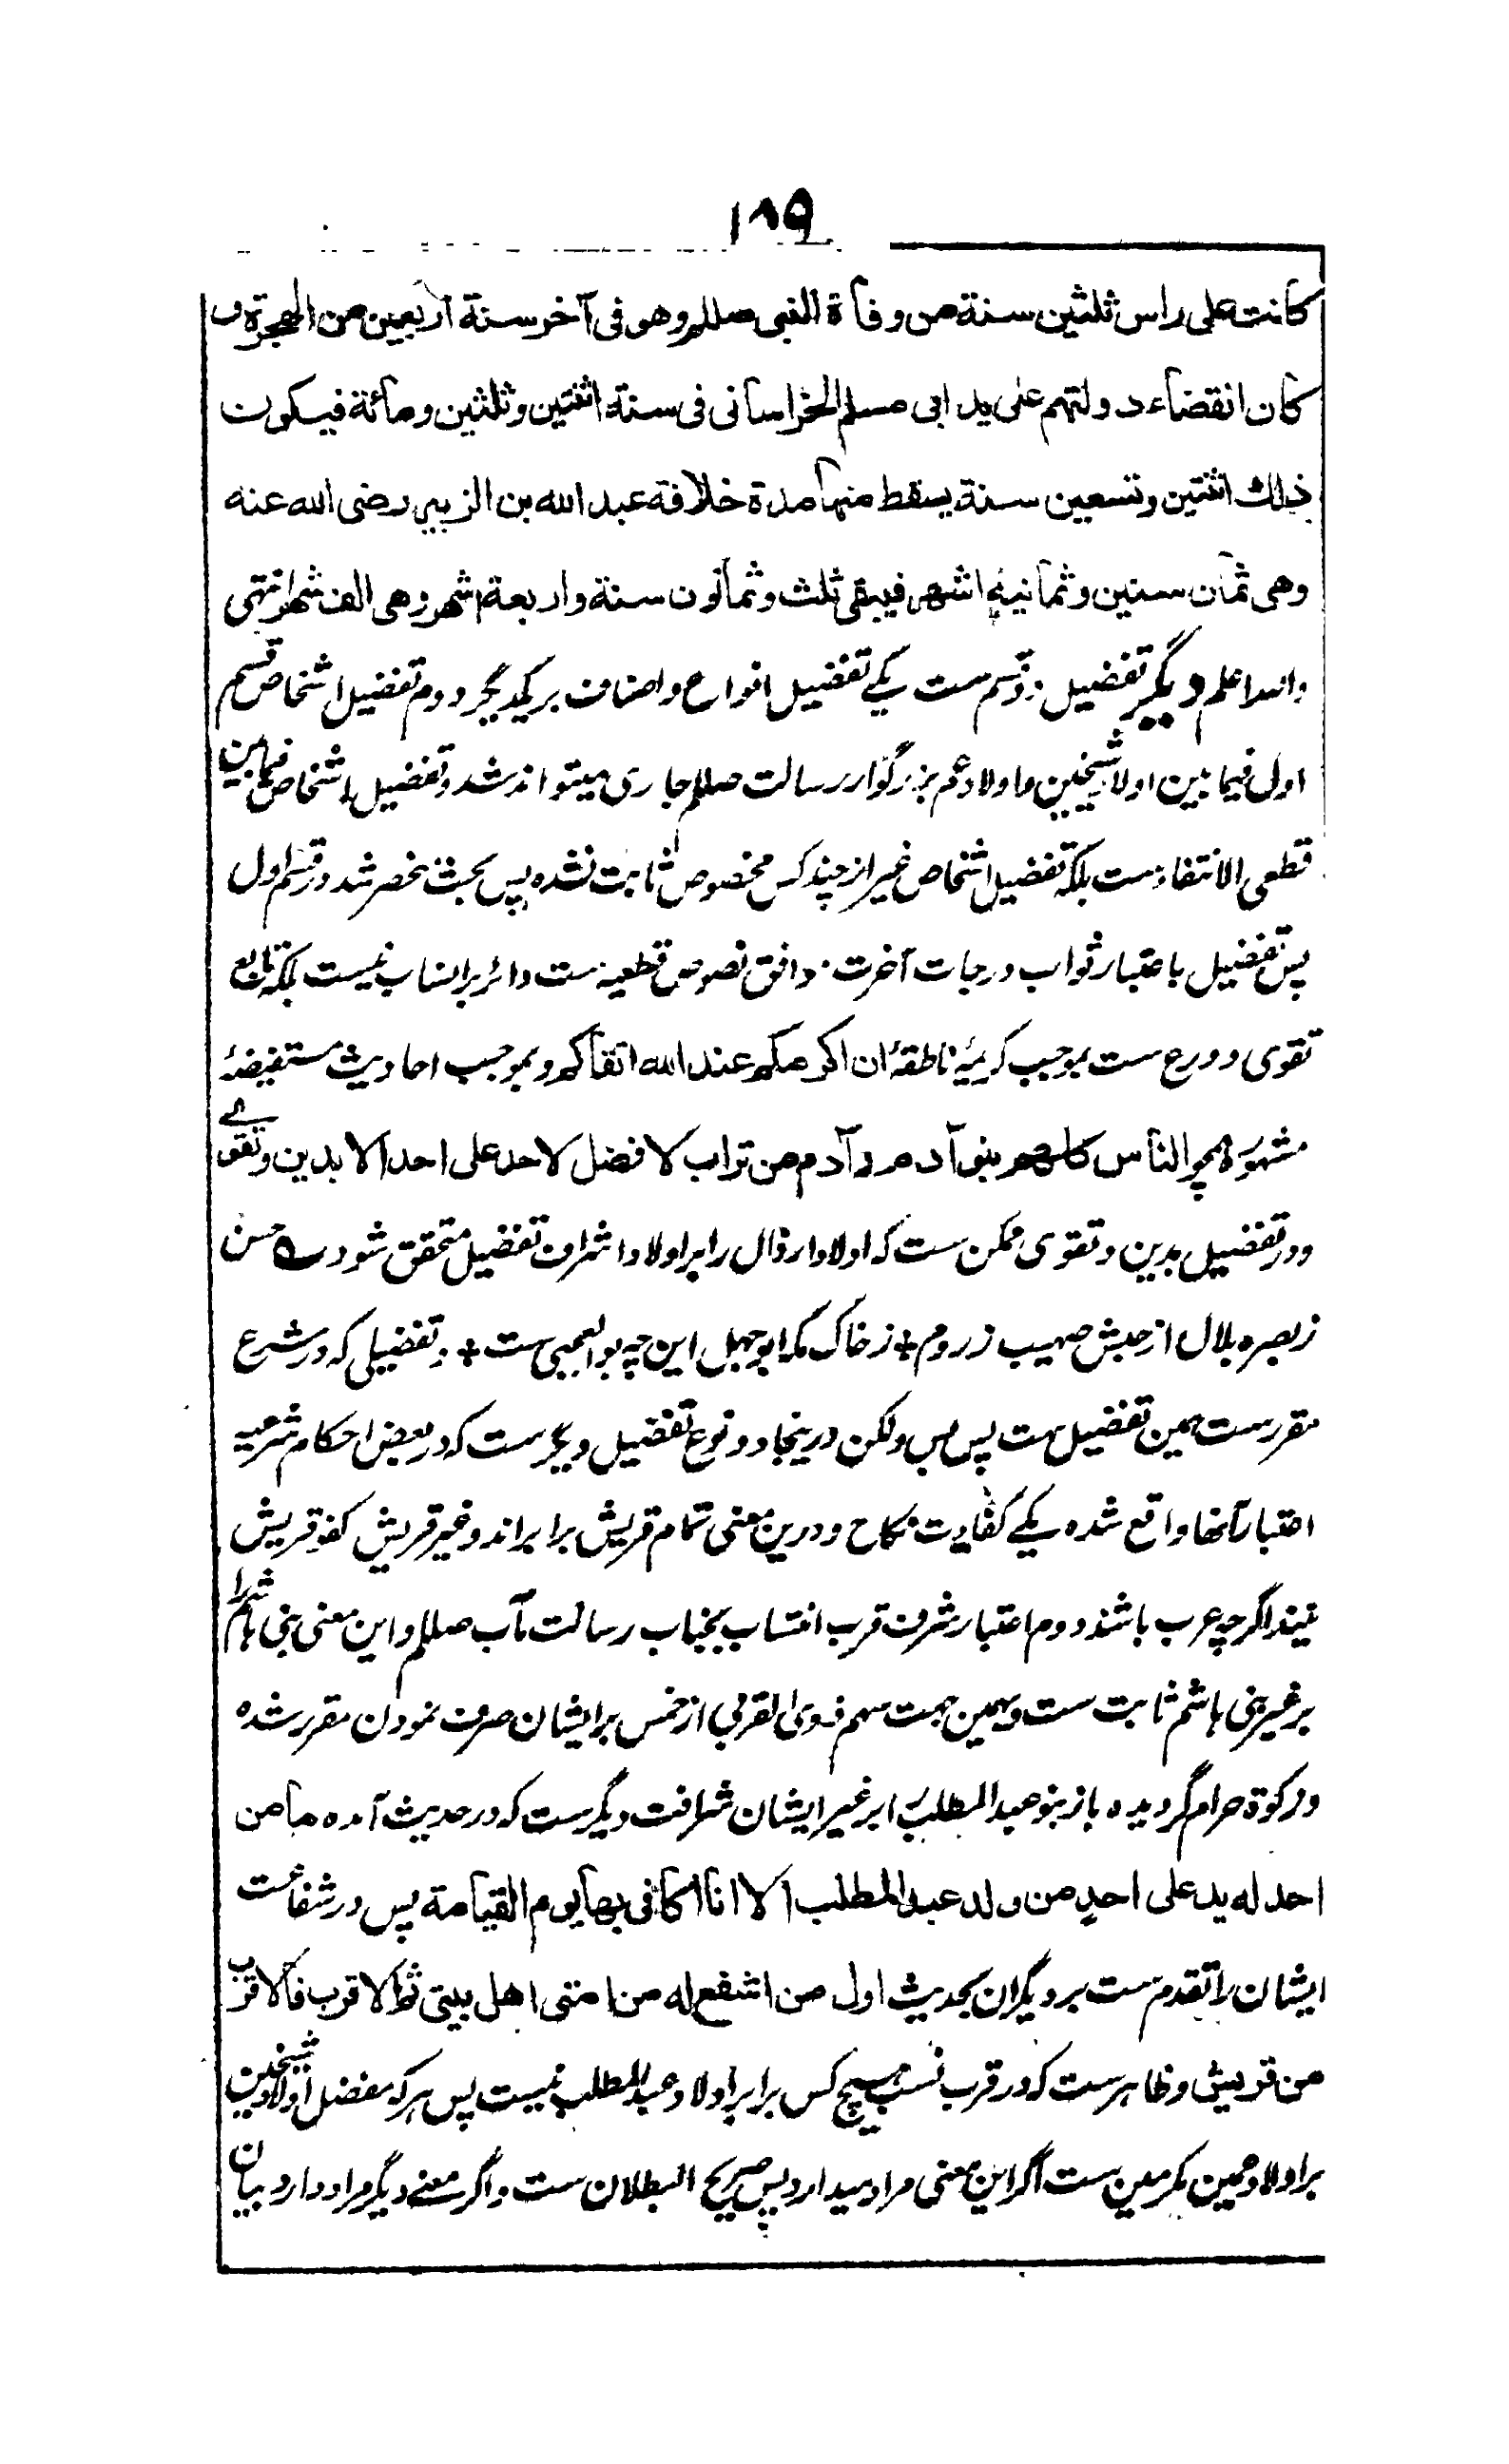 ۱۸۹
كانت على راس ثلثين سنة من وفاة النبى صللم وهو فى آخر سنة اربعين من الهجرة و
كان انقضاء دولتهم على يد ابى مسلم الخراسانى فى سنة اثنتين وثلثين ومائة فيكون
ذلك اثنتين وتسعين سنة يسقط منها مدة خلافة عبد الله بن الزبير رضى الله عنه
وهى ثمان سنين وثمانية اشهر فيبقى ثلث وثمانون سنة واربعة اشهر وهى الف شهر انتهى
والله اعلم دیگر تفضیل دو قسم ست یکے تفضیل انواع و اصناف بر یکدیگر دوم تفضیل اشخاص قسم
اول فیما بین اولاد شیخین و اولاد عم بزرگوار رسالت صللم جاری میتواند شد و تفضیل اشخاص فیما بین
قطعی الانتفاء ست بلکه تفضیل اشخاص غیر از چند کس مخصوص ثابت نشده پس بحث منحصر شد در قسم اول
پس تفضیل باعتبار ثواب و درجات آخرت موافق نصوص قطعیه ست دائر بر انساب نیست بلکه تابع
تقوی و ورع ست بموجب کریمهٔ ناطقهٔ ان اكرمكم عند الله اتقاكم و بموجب احادیث مستفیضهٔ
مشهوره همچو الناس كلهم بنو آدم و آدم من تراب لا فضل لاحد على احد الا بدين وتقوے
و در تفضیل بدین و تقوی ممکن ست که اولاد ارذال را بر اولاد اشراف تفضیل متحقق شود ؎ حسن
ز بصره بلال از حبش صهیب ز روم + ز خاک مکه ابوجهل این چه بوالعجبی ست + و تفضیلی که در شرع
مقررست همین تفضیل ست پس بس ولکن درینجا دو نوع تفضیل دیگرست که در بعض احکام شرعیه
اعتبار آنها واقع شده یکے کفاءت نکاح و درین معنی تمام قریش برابراند و غیر قریش کفو قریش
نیند اگرچه عرب باشند دوم اعتبار شرف قرب انتساب بجناب رسالت مآب صللم و این معنی بنی هاشم را
بر غیر بنی هاشم ثابت ست و بهمین جهت سهم ذوی القربی از خمس بر ایشان صرف نمودن مقرر شده
و زکوة حرام گردیده باز بنو عبد المطلب را بر غیر ایشان شرافت دیگرست که در حدیث آمده ما من
احد له يد على احد من ولد عبد المطلب الا انا اكافى بها يوم القيامة پس در شفاعت
ایشان را تقدم ست بر دیگران بحدیث اول من اشفع له من امتى اهل بيتى ثم الاقرب فالاقرب
من قريش و ظاهرست که در قرب نسب هیچ کس برابر اولاد عبد المطلب نیست پس هر که مفضل اولاد شیخین
بر اولاد عمین مکرمین ست اگر این معنی مراد میدارد پس صریح البطلان ست و اگر معنے دیگر مراد دارد بیان